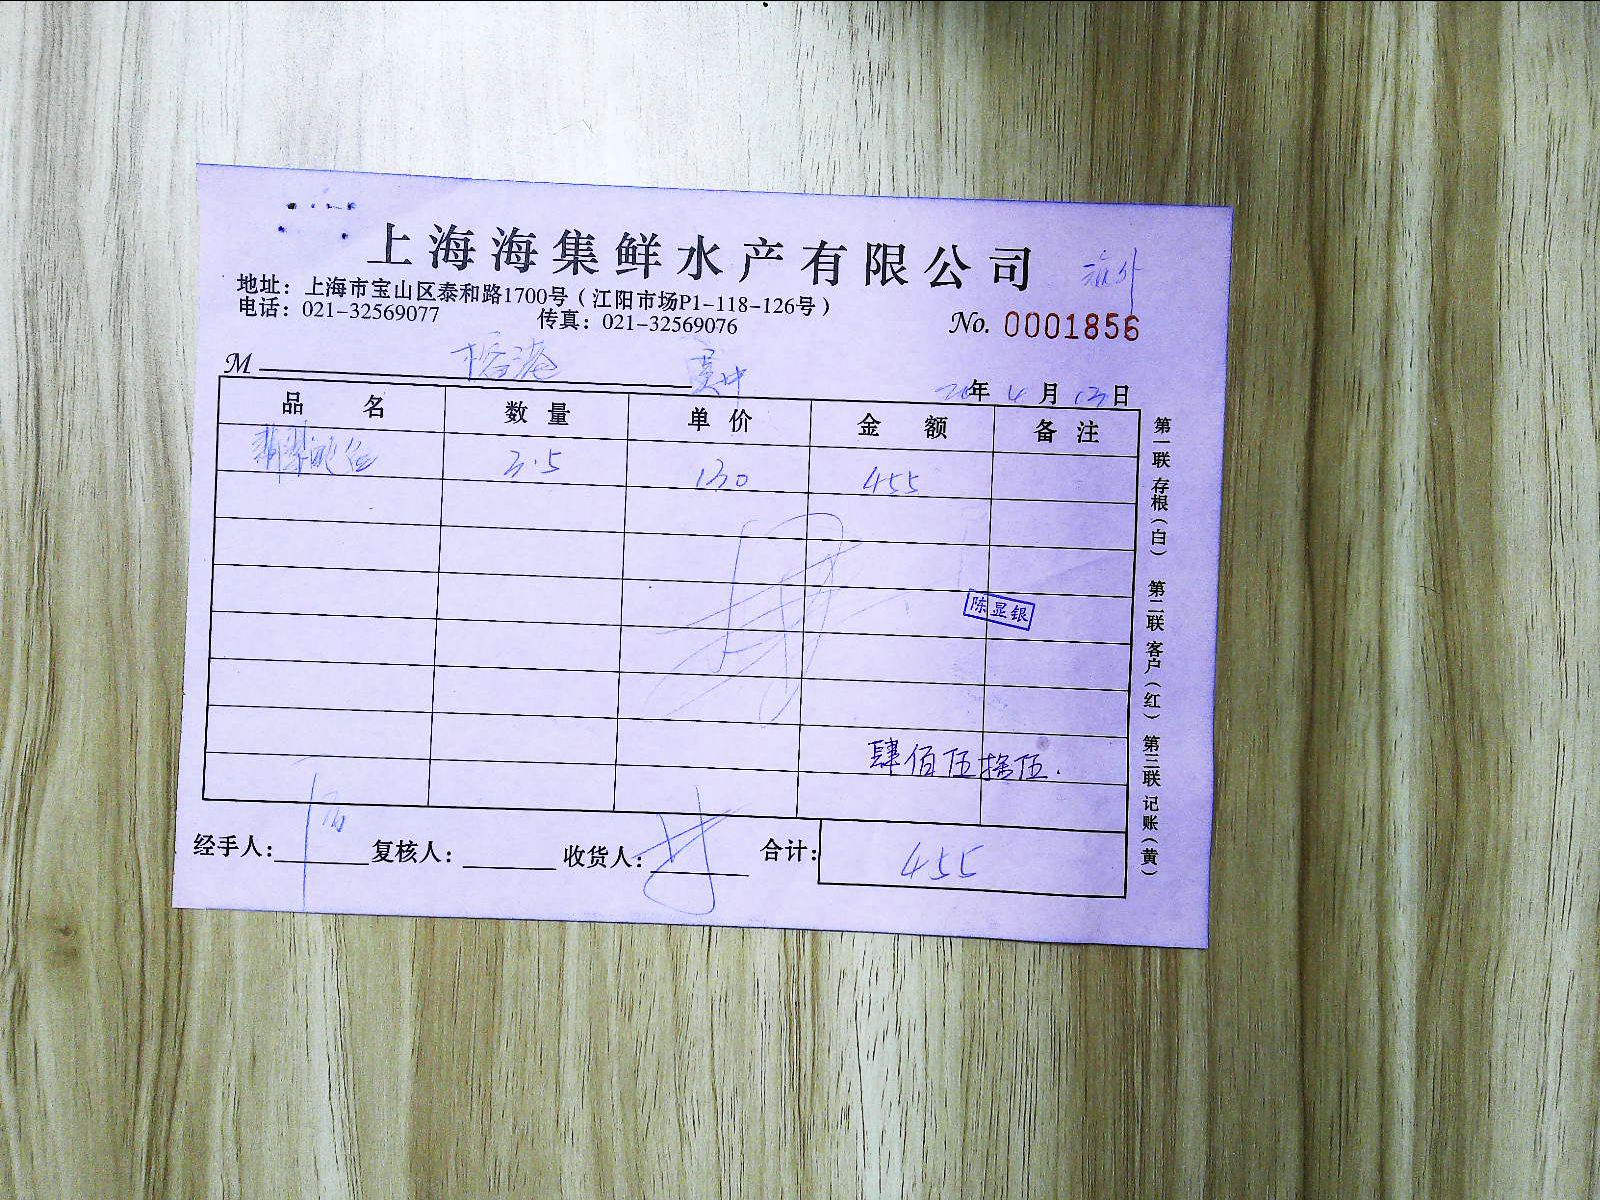 上海海集鲜水产有限公司
地址：上海市宝山区泰和路1700号（江阳市场P1-118-126号）
电话：021-32569077 传真：021-32569076
No. 0001856
M 榕港
20年4月13日
品名 数量 单价 金额 备注
翡翠 3.5 130 455
陈显银
肆佰伍拾伍.
经手人： 复核人： 收货人： 合计： 455
第一联 存根（白） 第二联 客户（红） 第三联 记账（黄）